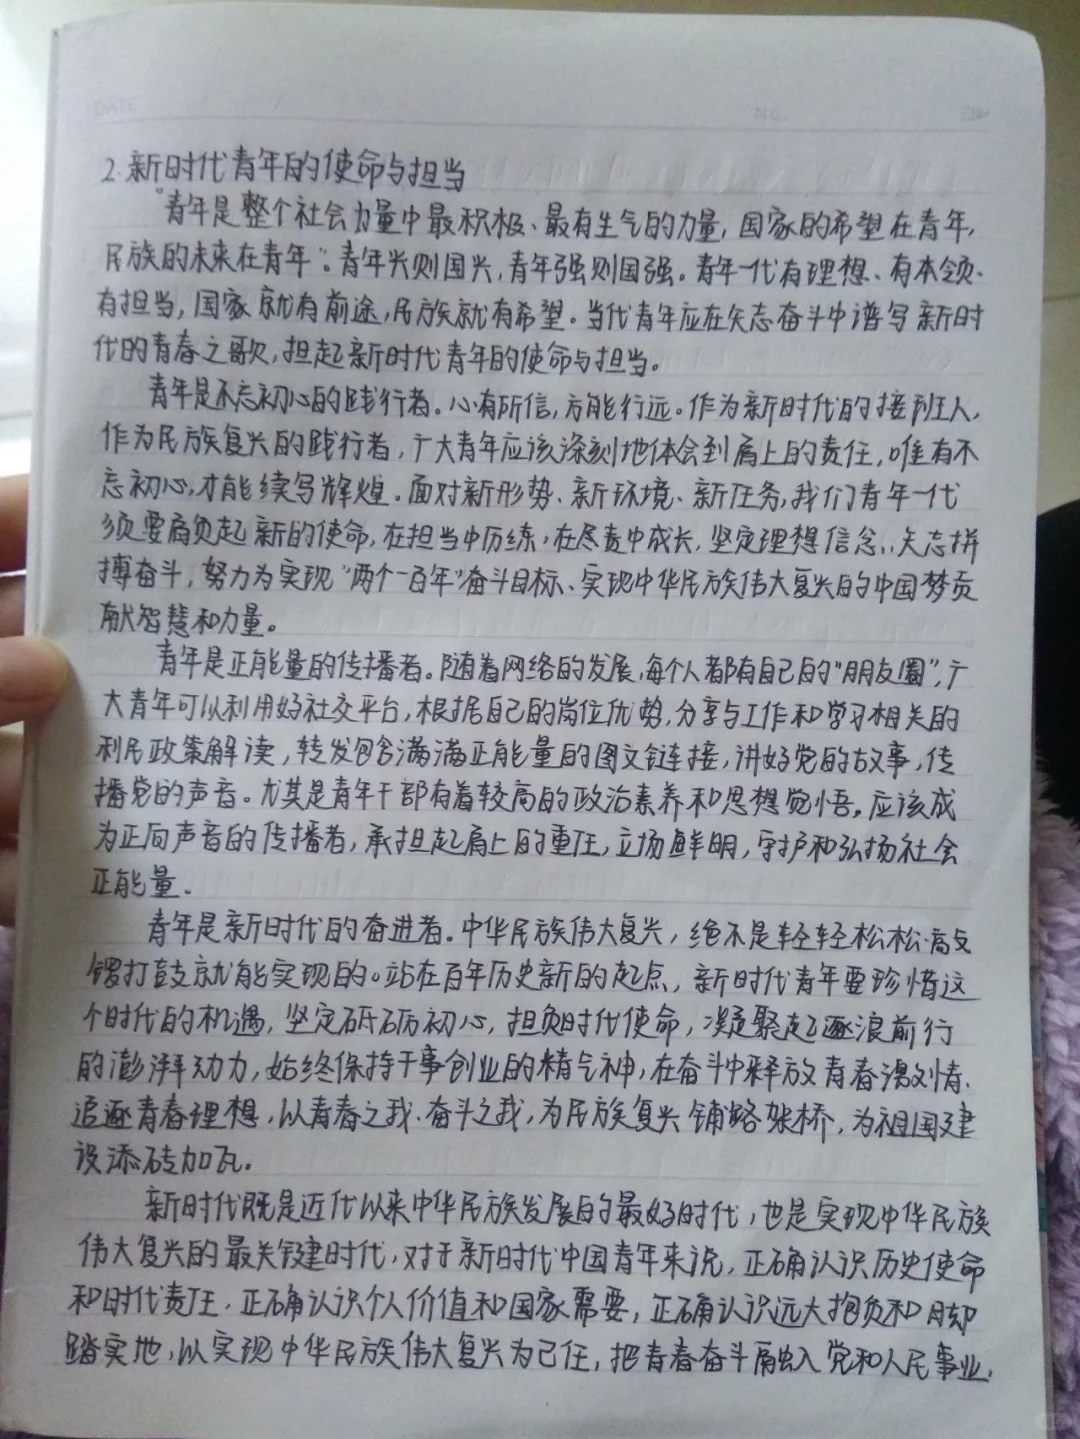 DATE
2.新时代青年的使命与担当
"青年是整个社会力量中最积极、最有生气的力量,国家的希望在青年,
民族的未来在青年"。青年兴则国兴,青年强则国强。青年一代有理想、有本领、
有担当,国家就有前途,民族就有希望。当代青年应在矢志奋斗中谱写新时
代的青春之歌,担起新时代青年的使命与担当。
青年是不忘初心的践行者。心有所信,方能行远。作为新时代的接班人,
作为民族复兴的践行者,广大青年应该深刻地体会到肩上的责任,唯有不
忘初心,才能续写辉煌。面对新形势、新环境、新任务,我们青年一代
须要肩负起新的使命,在担当中历练,在尽责中成长,坚定理想信念,矢志拼
搏奋斗,努力为实现"两个一百年"奋斗目标、实现中华民族伟大复兴的中国梦贡
献智慧和力量。
青年是正能量的传播者。随着网络的发展,每个人都有自己的"朋友圈",广
大青年可以利用好社交平台,根据自己的岗位优势,分享与工作和学习相关的
利民政策解读,转发包含满满正能量的图文链接,讲好党的故事,传
播党的声音。尤其是青年干部有着较高的政治素养和思想觉悟,应该成
为正向声音的传播者,承担起肩上的重任,立场鲜明,守护和弘扬社会
正能量。
青年是新时代的奋进者。中华民族伟大复兴,绝不是轻轻松松、敲
锣打鼓就能实现的。站在百年历史新的起点,新时代青年要珍惜这
个时代的机遇,坚定砥砺初心,担负时代使命,凝聚起逐浪前行
的澎湃动力,始终保持干事创业的精气神,在奋斗中释放青春激情、
追逐青春理想,以青春之我、奋斗之我,为民族复兴铺路架桥,为祖国建
设添砖加瓦。
新时代既是近代以来中华民族发展的最好时代,也是实现中华民族
伟大复兴的最关键时代,对于新时代中国青年来说,正确认识历史使命
和时代责任,正确认识个人价值和国家需要,正确认识远大抱负和脚
踏实地,以实现中华民族伟大复兴为己任,把青春奋斗融入党和人民事业,